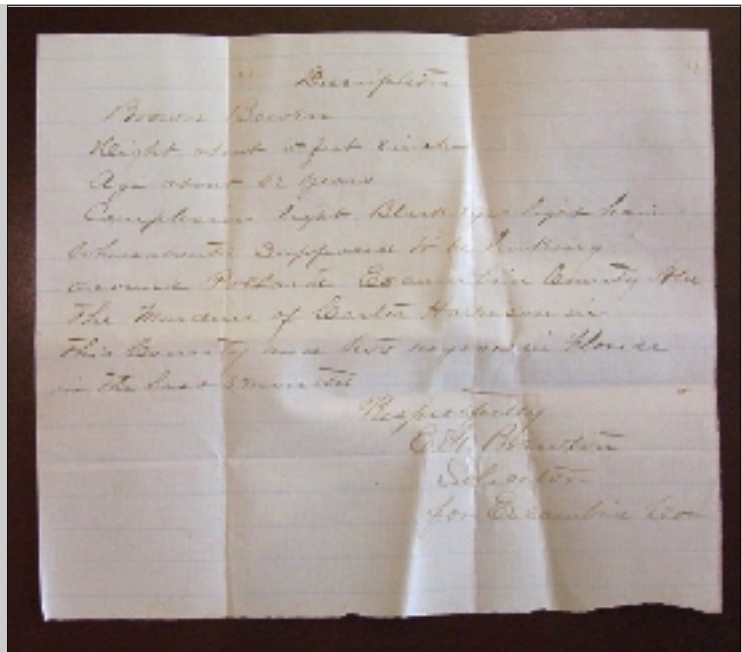 Description
Brown Bowen
Height about 5 feet
Age about years
Complexion light Black eyes light hair
Whereabouts Supposed to be lurking
around Pollard Escambia County Ala
The Murderer of in
This County and two negroes in
in the last months
Respectfully
E.M.
Solicitor
for Escambia Co